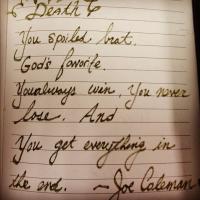 Death
You spoiled brat.
God's favorite.
You always win, You never
lose. And
You get everything in
the end. ~ Joe Coleman